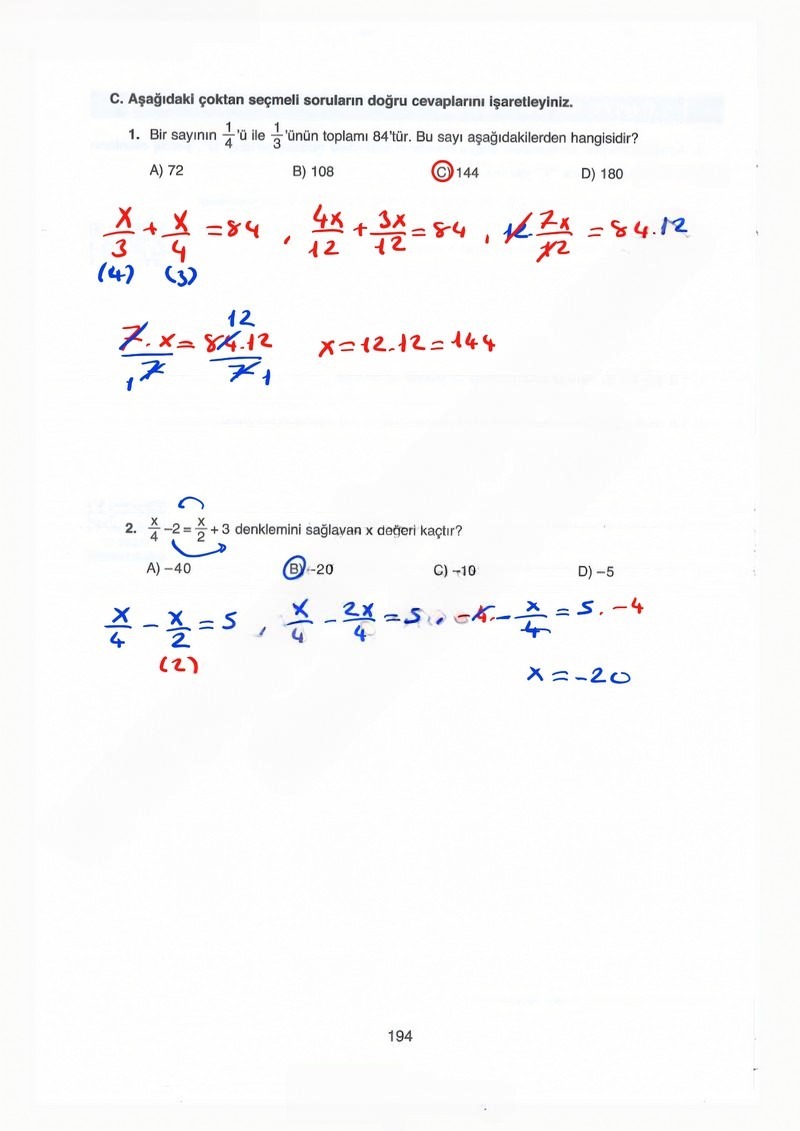 C. Aşağıdaki çoktan seçmeli soruların doğru cevaplarını işaretleyiniz.
1. Bir sayının 1/4'ü ile 1/3'ünün toplamı 84'tür. Bu sayı aşağıdakilerden hangisidir?
A) 72 B) 108 C) 144 D) 180
x/3 + x/4 = 84 , 4x/12 + 3x/12 = 84 , 12. 7x/12 = 84.12
(4) (3)
12
7.x/7 = 84.12/7 x=12.12=144
1 1
2. x/4 -2 = x/2 + 3 denklemini sağlayan x değeri kaçtır?
A) -40 B) -20 C) -10 D) -5
x/4 - x/2 = 5 , x/4 - 2x/4 = 5 , -4. - x/4 = 5. -4
(2)
x = -20
194